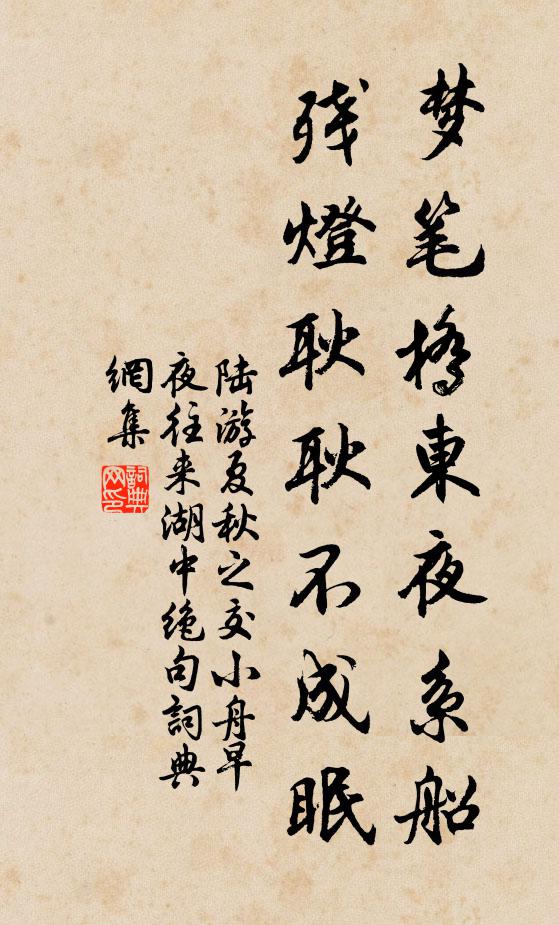 梦笔桥東夜系船
残燈耿耿不成眠
陆游夏秋之交小舟早
夜往来湖中绝句詞典
網集
詞典网印